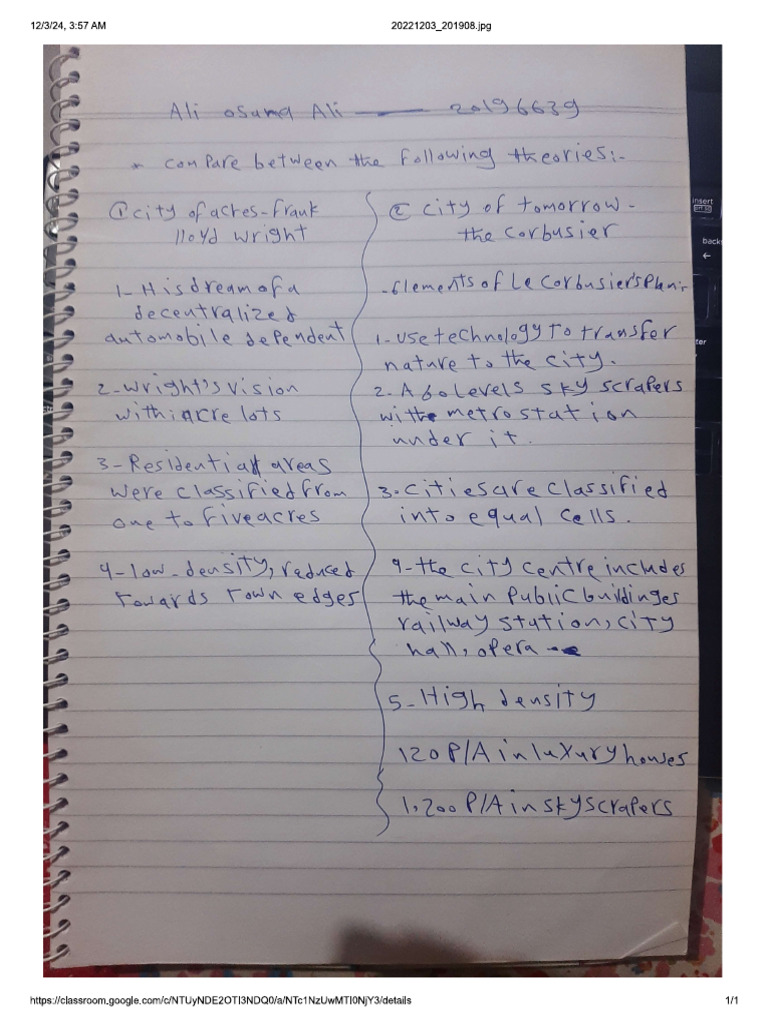 12/3/24, 3:57 AM
20221203_201908.jpg
Ali osama Ali — 20196639
* compare between the following theories:-
① city of acres - frank
lloyd wright
1- His dream of a
decentralized
automobile dependent
2- wright's vision
with acre lots
3- Residential areas
were classified from
one to five acres
4- low-density, reduced
towards town edges
② city of tomorrow -
the corbusier
- Elements of Le Corbusier's
1- use technology to transfer
nature to the city.
2- A 60 levels sky scrapers
with metro station
under it.
3- cities are classified
into equal cells.
4- the city centre includes
the main public buildinges
railway station, city
hall, opera
5- High density
120 P/A in luxury houses
1,200 P/A in skyscrapers
insert
back
https://classroom.google.com/c/NTUyNDE2OTI3NDQ0/a/NTc1NzUwMTI0NjY3/details
1/1